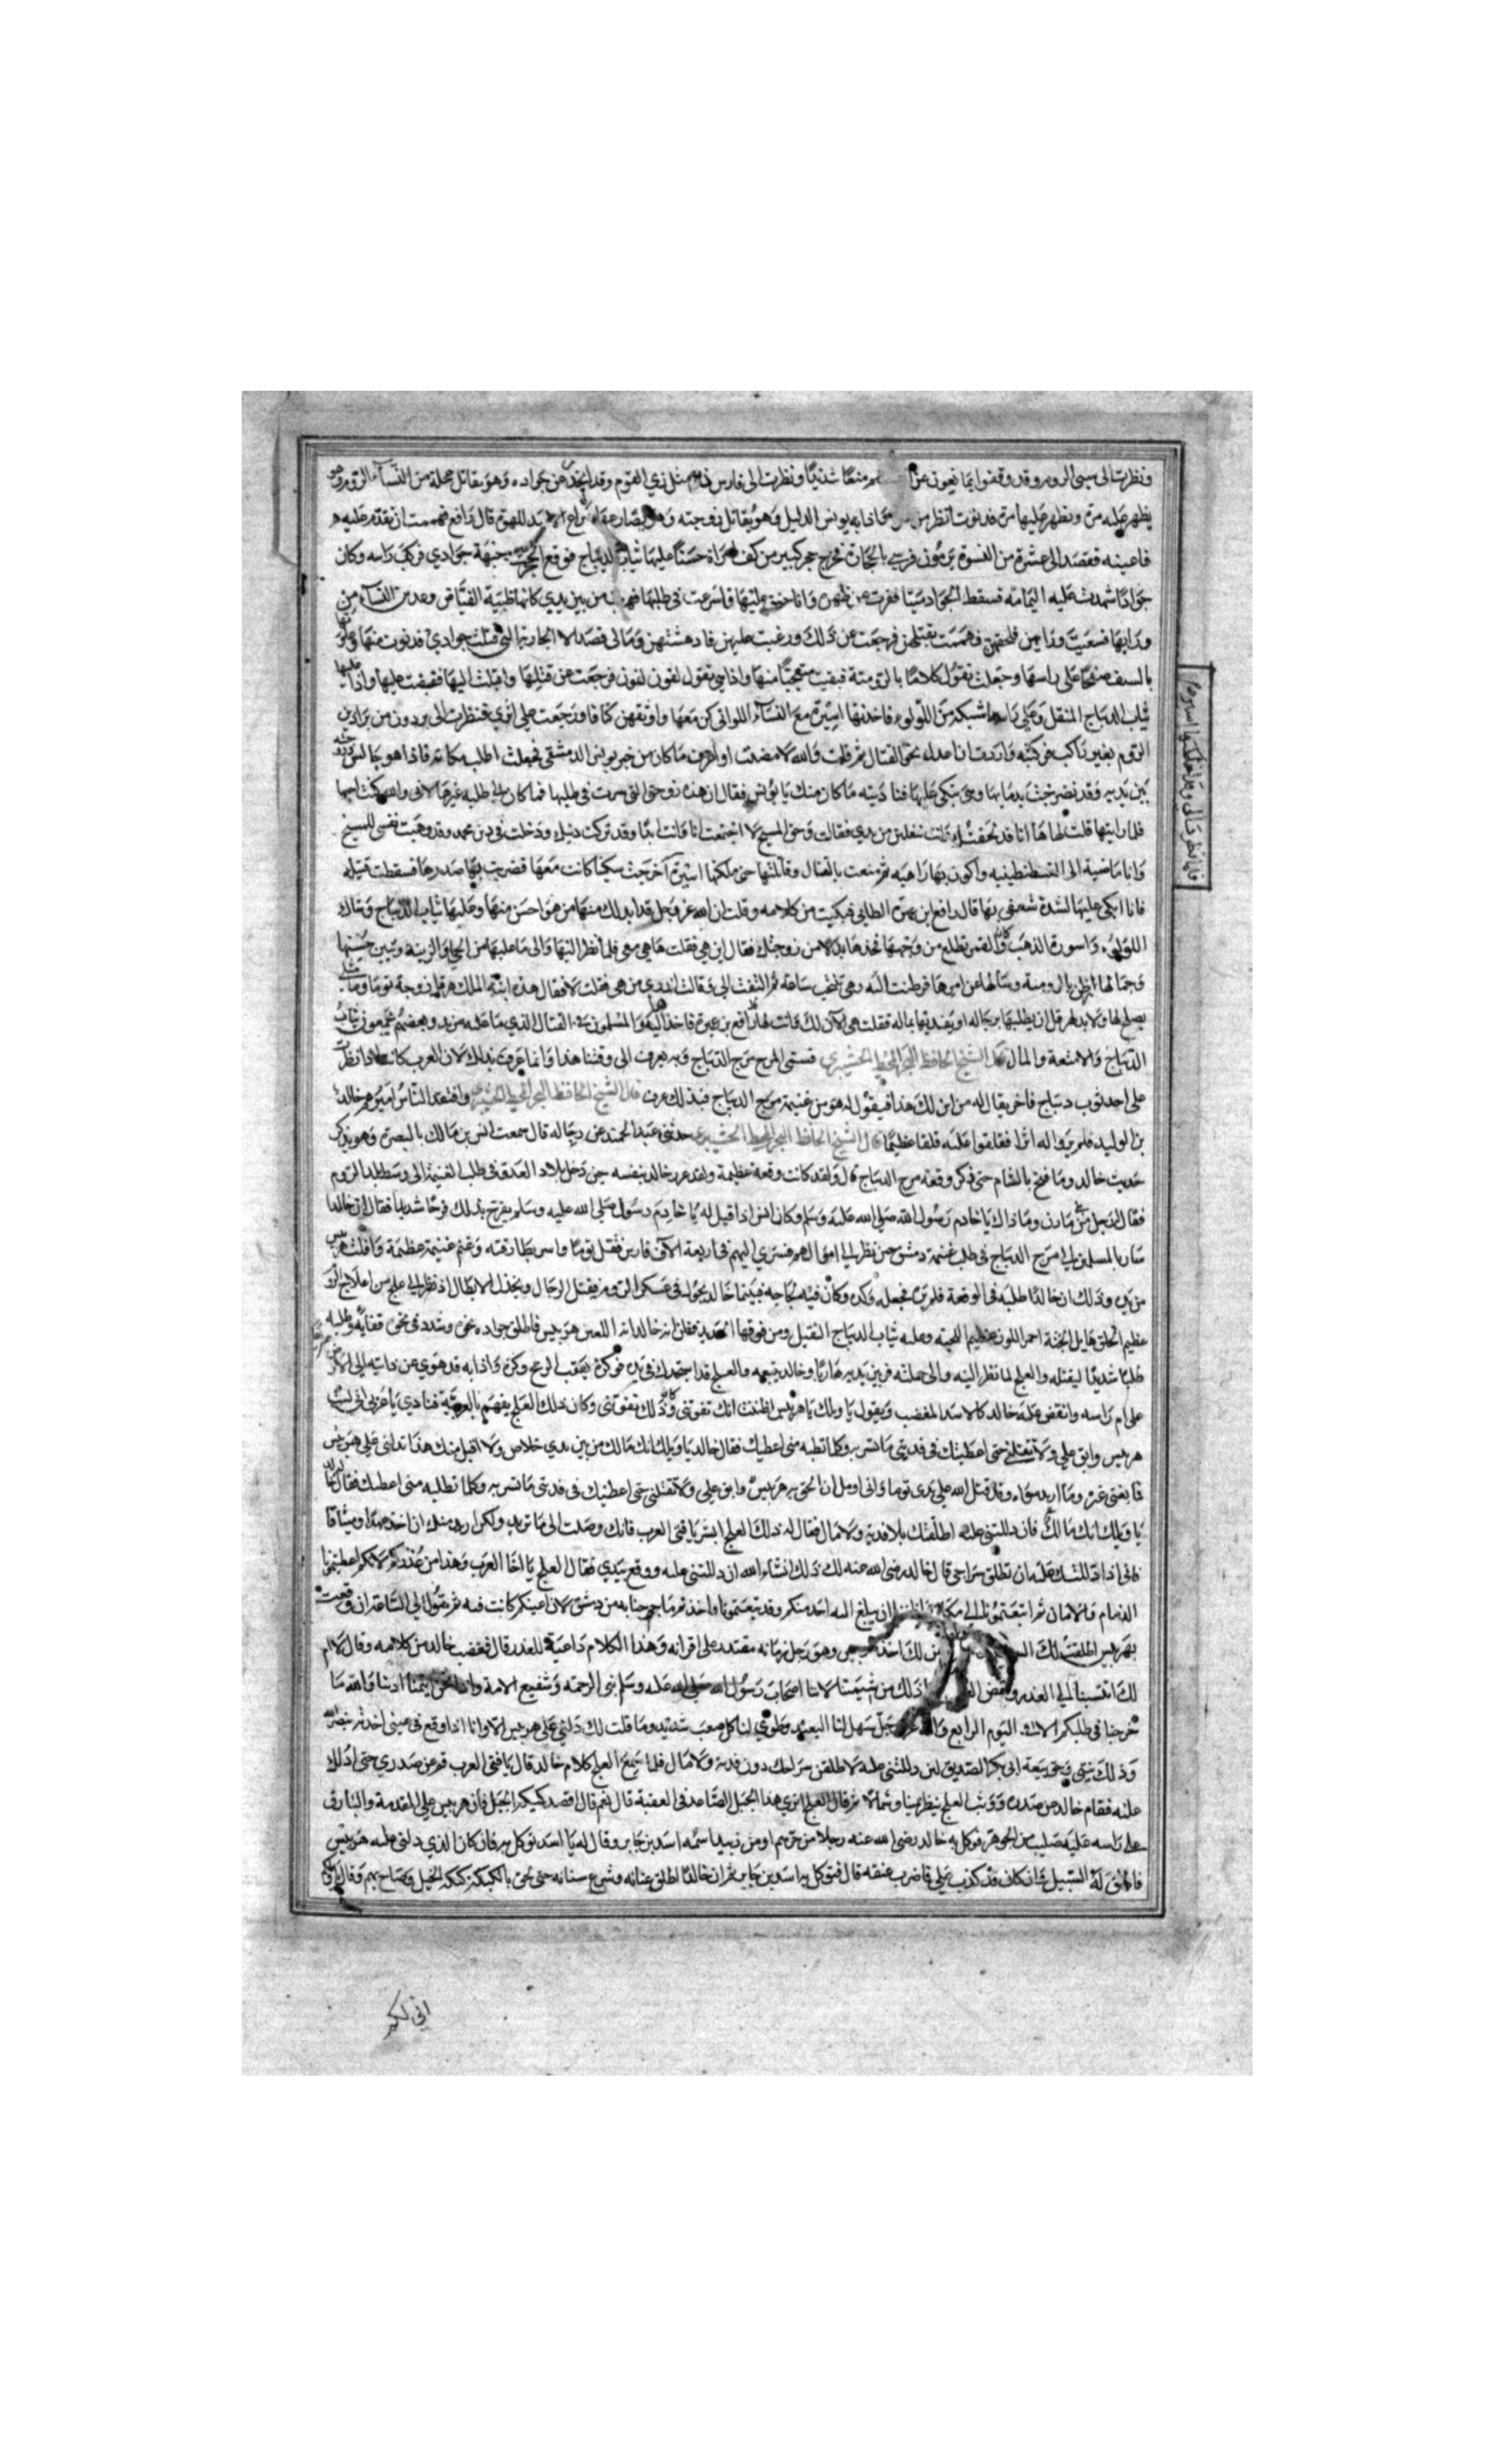 ونظرت الى سبى الروم وقد وقفوا يمانعون عن منعا شديدا ونظرت الى فارس مثل زي القوم وقد انحدر عن جواده وهو يقاتل من النساء الروم وهو
يظهر عليه مرة ويظهر عليها مرة فدنوت انظر من فاذا به يونس الدليل وهو يقاتل زوجته وهو يصارعها صراع الاسد للبوة قال رافع فهممت ان يتقدم عليه
فاعينه فقصد الى عشرة من النسوة يرمون فرسي بالحجارة فخرج حجر كبير من كف امراة حسنا عليها ثياب الديباج فوقع الحجر في جبهة جوادي فركب راسه وكان
جوادا شهدت عليه اليمامة فسقط الجواد ميتا وانا عليها فاسرعت في طلبها من بين يدي كانها ظبية القناص وعدت النساء من
وراءها فسعيت وراهن فلحقتهن وهممت بقتلهن فرجعت عن ذلك ورغبت عليهن فادهشتهن ومالي قصد الا الجارية التي قتلت جوادي فدنوت منها
بالسيف صفحا على راسها وجعلت تقول كلاما بالرومية فبقيت متعجبا منها واذا هي تقول لفون لفون فرجعت عن قتلها واقبلت اليها فقبضت عليها واذا عليها
ثياب الديباج المثقل وعلى راسها شبكة من اللولو فاخذتها اسيرة مع النساء اللواتي كن معها واوثقتهن كتافا ورجعت على اثري فنظرت الى برذون من براذين
الروم بغير راكب فركبته واردت نحو القتال ثم قلت والله لا مضيت او اعرف ما كان من خبر يونس الدمشقي فجعلت اطلب مكانه فاذا هو جالس وزوجته
بين يديه وقد تضرجت بدمايها وهو يبكي عليها فناديته ما كان منك يا يونس فقال ان هذه زوجتي التي سرت في طلبها فما كان لي طلبه غيرها لاني والله كنت احبها
فلما رايتها قلت لها ها انا قد لحقتك وانت تفلتين من يدي فقالت وحق المسيح لا اجتمعت انا وانت ابدا وقد تركت دينك ودخلت في دين محمد وقد وهبت نفسي للمسيح
وانا ماضية الى القسطنطينيه واكون بها راهبه ثم منعت بالقتال وقاتلتها حتى ملكتها اسيرة اخرجت سكينا كانت معها فضربت بها صدرها فسقطت قتيلة
فانا ابكي عليها لشدة شعفي بها قال رافع ابن عميرة الطايي فبكيت من كلامه وقلت ان الله عز وجل قد ابدلك منها من هو احسن منها وعليها ثياب الديباج وشباك
اللولو واسورة الذهب كان القمر تطلع من وجهها فخذها بدلا من زوجتك فقال اين هي فقلت هاهي معي فلما نظر اليها والى ما عليها من الحلي والزينة وتبين حسنها
وجمالها بالرومية وسالها عن امرها فرطنت اليه وهي تنتحب ساعة ثم التفت الي وقالت اتدري من هي فقلت لا فقال هذه ابنة الملك هرقل زوجة توما وما مثلي
يصلح لها ولا بد لهرقل ان يطلبها برجاله او يفديها بماله فقلت هي الان لك وانت لها رافع بن عميرة فاخذها اليه والمسلمون في القتال الذي ما عليه مزيد وبعضهم يجمعون ثياب
الديباج والامتعة والمال قال الشيخ الحافظ البحر المحيط الحشيري فسمي المرج مرج الديباج وبه يعرف الى وقتنا هذا وانما عرف بذلك لان العرب كانت اذا نظرت
على احد ثوب ديباج فاخر يقال له من اين لك هذا فيقول له هو من غنيمة مرج الديباج فبذلك عرف قال الشيخ الحافظ البحر المحيط الحشيري وافتقد الناس اميرهم خالد
بن الوليد فلم يروا له اثرا فقلقوا عليه قلقا عظيما قال الشيخ الحافظ البحر المحيط الحشيري حدثني عبد الحميد عن رجاله قال سمعت انس بن مالك بالبصرة وهو يذكر
حديث خالد وما فتح بالشام حتى ذكر وقعة مرج الديباج قال ولقد كانت وقعة عظيمة ولقد غرر خالد بنفسه حين دخل بلاد العدو في طلب الغنيمة الى وسط بلد الروم
فقال رجل من مازن وما ذاك يا خادم رسول الله صلى الله عليه وسلم وكان انس اذا قيل له يا خادم رسول صلى الله عليه وسلم يفرح بذلك فرحا شديدا فقال ان خالدا
سار بالمسلمين الى مرج الديباج في طلب غنيمة دمشق حين نظر الى اموالهم فسرى اليهم في اربعة الاف فارس فقتل توما واسر بطارقته وغنم غنيمة عظيمة وافلت هربيس
من يده وذلك ان خالدا طلبه في الوقعة فلم يره فجعله وكده وكان فيه لجاجه فبينما خالد يجول في عسكر الروم يقتل الرجال ويجندل الابطال اذ نظر الى علج من اعلاج الروم
عظيم الخلق هايل الجثة احمر اللون عظيم اللحية وعليه ثياب الديباج الثقيل ومن فوقها الحديد فظن انه خالد انه اللعين هربيس فاطلق جواده نحوه وشدد في نحو قفاه وطلبه
طلبا شديدا ليقتله والعلج لما نظر اليه والى حملته فر بين يديه هاربا وخالد يتبعه والعلج قد فوكزه بعقب الرمح وكزة واذا به قد هوى عن دابته الى الارض
على ام راسه وانقض عليه خالد كالاسد المغضب ويقول يا ويلك يا هربيس اظننت انك تفوتني وكان ذلك العلج يفهم بالعربية فنادى يا عربي اني لست
هربيس وابق علي ولا تقتلني حتى اعطيك في فديتي ما تسر به وكلما تطلبه مني اعطيك فقال خالد يا ويلك انك مالك من بين يدي خلاص ولا اقبل منك هذا تدلني على هربيس
فما بغيتي غيره وما اريد سواه وقد قتل الله على يدي توما واني اومل ان الحق به هربيس وابق علي ولا تقتلني حتى اعطيك في فديتي ما تسر به وكلما تطلبه مني اعطيك فقال خالد
يا ويلك انك مالك فان دللتني عليه اطلقتك بلا فدية ولا مال فقال له ذلك العلج ابشر يا فتى العرب فانك وصلت الى ما تريد ولكن اريد منك ان اخذ عهدا وميثاقا
فاني اذا دللتك عليه ان تطلق سراحي قال خالد رضى الله عنه لك ذلك انشاء الله ان دللتني عليه ووقع بيدي فقال العلج يا اخا العرب وهذا من غدركم لانكم اعطيتمونا
الذمام والامان ثم اتبعتمونا الى ان يبلغ اليه احد منكم وقد تبعتمونا واخذتم ما خرجنا به من دمشق لان اعينكم كانت فيه ثم تقول لي الساعة ان وقعت
بهربيس اطلقت لك لك اخذ وهو رجل زمانه مقتدر على اقرانه وهذا الكلام داعية للغدر قال فغضب خالد من كلامه وقال لا ام
لك انتسبنا الى الغدر ونقض ذلك من شيمتنا لاننا اصحاب رسول الله صلى الله عليه وسلم نبي الرحمة وشفيع الامة والله ما
خرجنا في طلبكم الا في اليوم الرابع والله عز وجل سهل لنا البعيد وطوى لنا كل صعب شديد وما قلت لك دلني على هربيس الا وانا اذا وقع في عيني اخذته بنصر الله
وذلك بيتي وحق بيعة ابي بكر الصديق لين دللتني عليه لا طلقن سراحك دون فدية ولا مال فلما سمع العلج كلام خالد قال يا فتى العرب قم عن صدري حتى ادلك
عليه فقام خالد عن صدره ووثب العلج ينظر يمينا وشمالا ثم قال العلج اترى هذا الجبل الصاعد في العقبة قال نعم قال اقصد الجبل فان هربيس على المقدمة والبارق
على راسه عليه صليب من الجوهر فوكل به خالد رضى الله عنه رجلا من جرهم او من زبيد اسمه اسد بن جابر وقال له يا اسد توكل به فان كان الذي دلني عليه هربيس
فاطلق له السبيل وان كان قد كذب علي فاضرب عنقه قال فتوكل به اسد بن جابر ثم ان خالدا اطلق عنانه وشرع سنانه حتى لحق بالكبكبة كبكبة الخيل وصاح بهم وقال
اني لكم